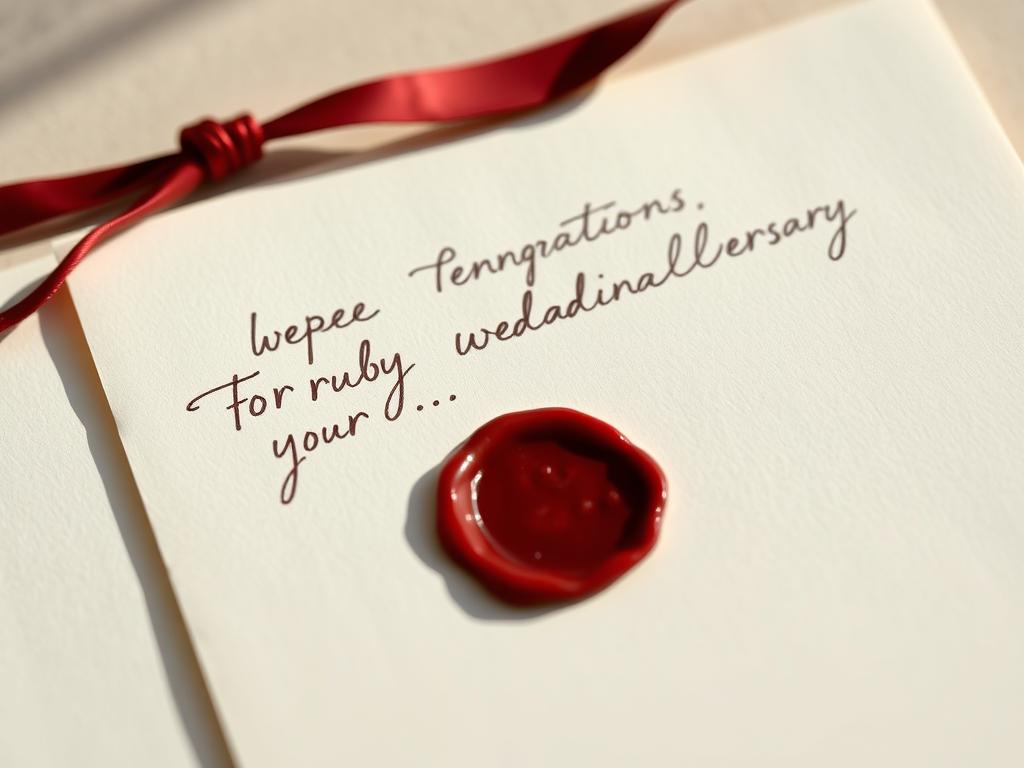 Iwepee Tenngrations.
For ruby wedadinallersary
your...